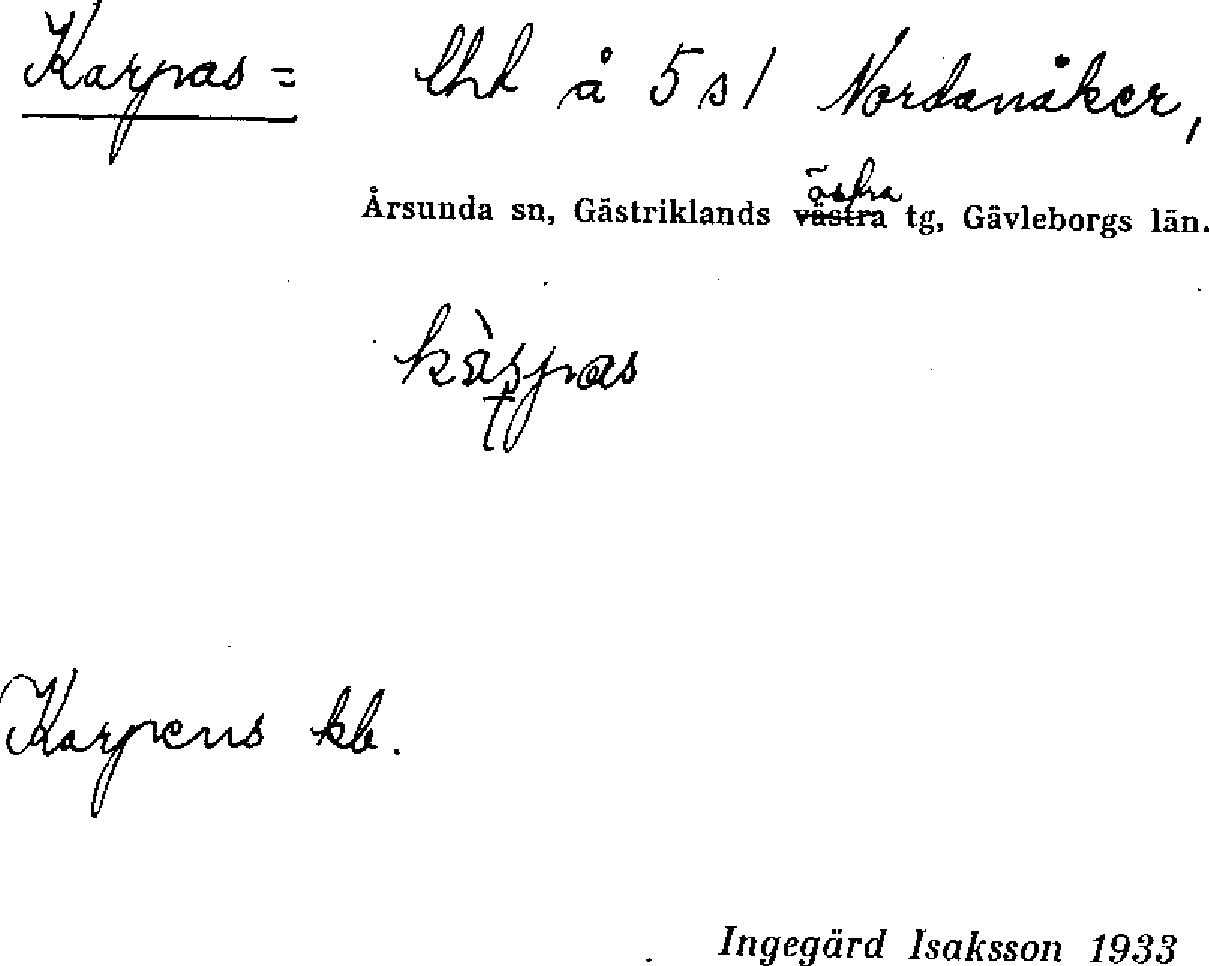 Karpas = lht å 5s1 Nordanåker,
östra
Årsunda sn, Gästriklands västra tg, Gävleborgs län.
Karpens kb.
Ingegärd Isaksson 1933